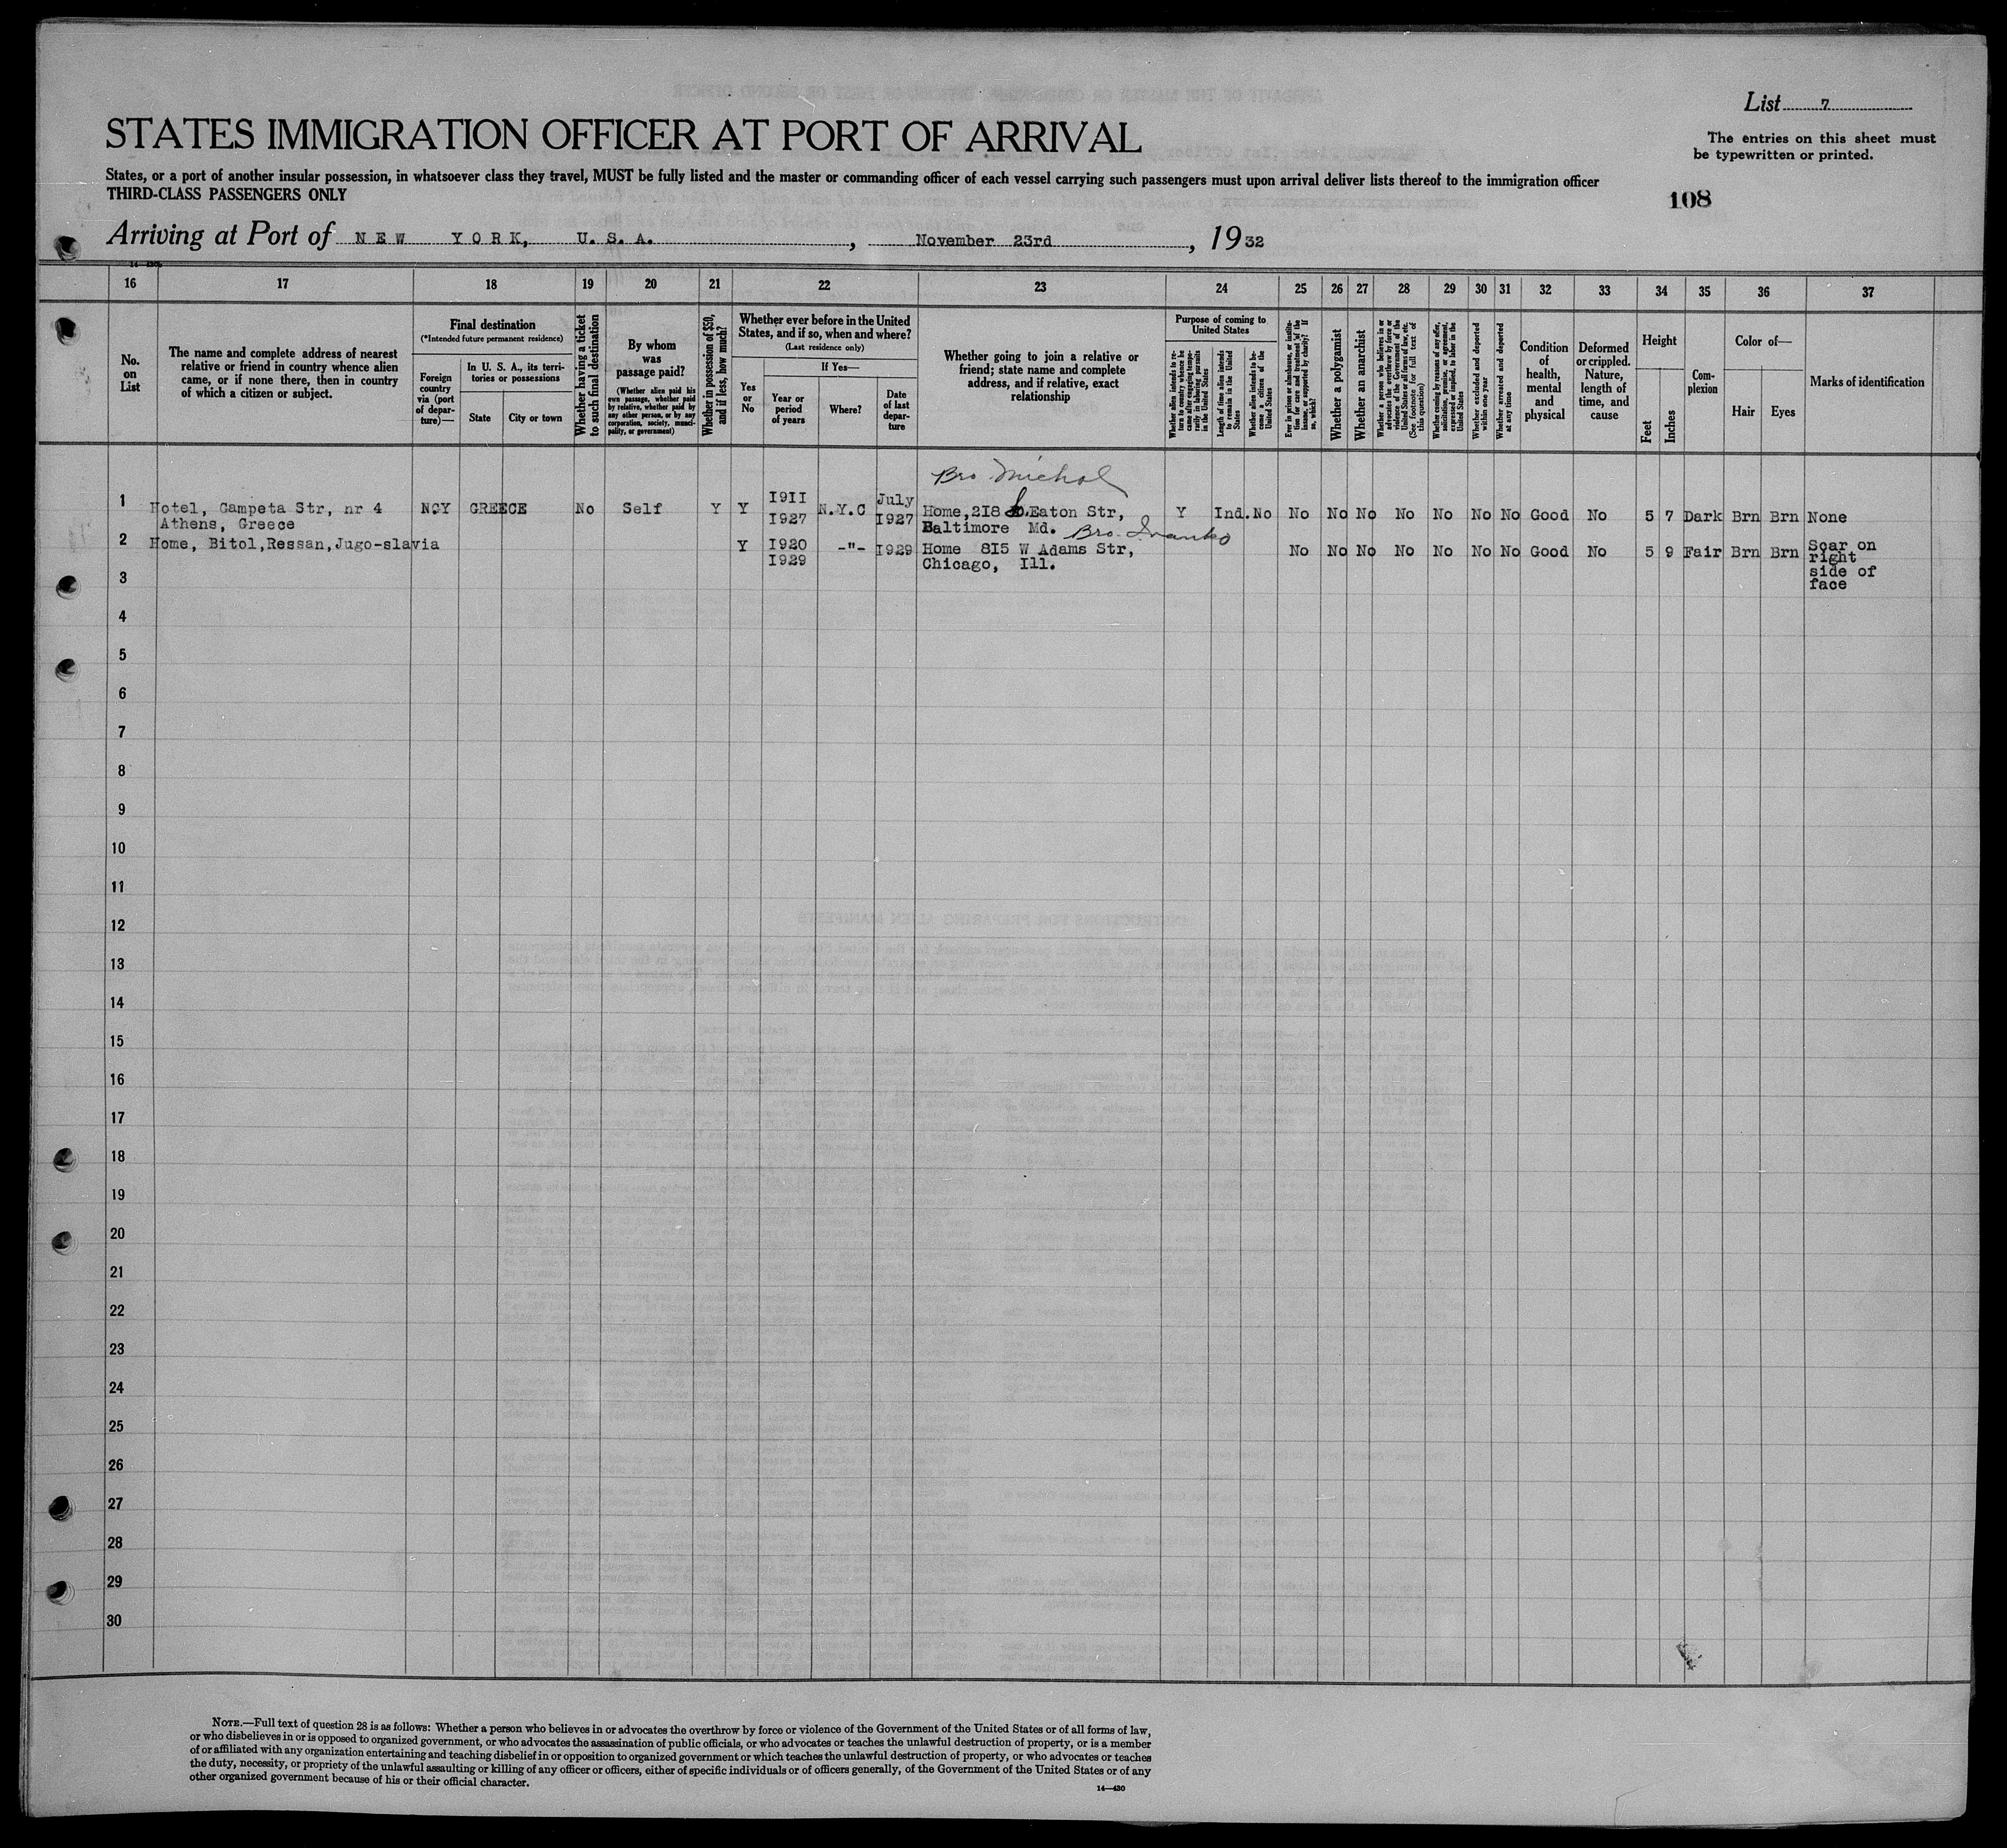 List 7
STATES IMMIGRATION OFFICER AT PORT OF ARRIVAL
The entries on this sheet must
be typewritten or printed.
States, or a port of another insular possession, in whatsoever class they travel, MUST be fully listed and the master or commanding officer of each vessel carrying such passengers must upon arrival deliver lists thereof to the immigration officer
THIRD-CLASS PASSENGERS ONLY
108
Arriving at Port of NEW YORK, U. S. A. , November 23rd , 1932
16 17 18 19 20 21 22 23 24 25 26 27 28 29 30 31 32 33 34 35 36 37
No. on List
The name and complete address of nearest
relative or friend in country whence alien
came, or if none there, then in country
of which a citizen or subject.
Final destination
(*Intended future permanent residence)
Foreign country via (port of departure)—
In U. S. A., its territories or possessions
State
City or town
Whether having a ticket to such final destination
By whom was passage paid?
(Whether alien paid his own passage, whether paid by relative, whether paid by any other person, or by any corporation, society, municipality, or government)
Whether in possession of $50, and if less, how much?
Whether ever before in the United States, and if so, when and where?
(Last residence only)
Yes or No
If Yes—
Year or period of years
Where?
Date of last departure
Whether going to join a relative or
friend; state name and complete
address, and if relative, exact
relationship
Purpose of coming to United States
Whether alien intends to return to country whence he came after engaging temporarily in laboring pursuits in the United States
Length of time alien intends to remain in the United States
Whether alien intends to become a citizen of the United States
Ever in prison or almshouse, or institution for care and treatment of the insane, or supported by charity? If so, which?
Whether a polygamist
Whether an anarchist
Whether a person who believes in or advocates the overthrow by force or violence of the Government of the United States or all forms of law, etc. (See footnote for full text of this question)
Whether coming by reasons of any offer, solicitation, promise, or agreement, expressed or implied, to labor in the United States
Whether excluded and deported within one year
Whether arrested and deported at any time
Condition of health, mental and physical
Deformed or crippled. Nature, length of time, and cause
Height
Feet
Inches
Complexion
Color of—
Hair
Eyes
Marks of identification
Bro Michol
1 Hotel, Campeta Str, nr 4 NCY GREECE No Self Y Y I9II N.Y.C July Home,2I8 S.Eaton Str, Y Ind. No No No No No No No No Good No 5 7 Dark Brn Brn None
Athens, Greece I927 I927 Baltimore Md.
Bro. Ivanko
2 Home, Bitol,Ressan,Jugo-slavia Y I920 -"- I929 Home 8I5 W Adams Str, No No No No No No No Good No 5 9 Fair Brn Brn Scar on
I929 Chicago, Ill. right
side of
face
3
4
5
6
7
8
9
10
11
12
13
14
15
16
17
18
19
20
21
22
23
24
25
26
27
28
29
30
NOTE.—Full text of question 28 is as follows: Whether a person who believes in or advocates the overthrow by force or violence of the Government of the United States or of all forms of law,
or who disbelieves in or is opposed to organized government, or who advocates the assassination of public officials, or who advocates or teaches the unlawful destruction of property, or is a member
of or affiliated with any organization entertaining and teaching disbelief in or opposition to organized government or which teaches the unlawful destruction of property, or who advocates or teaches
the duty, necessity, or propriety of the unlawful assaulting or killing of any officer or officers, either of specific individuals or of officers generally, of the Government of the United States or of any
other organized government because of his or their official character.
14—430